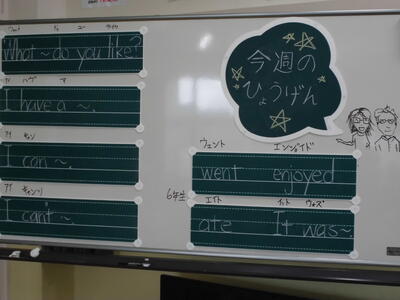 ワット ドゥ ユー ライク
What ~ do you like?
アイ ハヴ ア
I have a ~.
アイ キャン
I can ~.
アイ キャーント
I can't ~.
今週の
ひょうげん
ウェント エンジョイド
went enjoyed
6年生
エイト イット ワォズ
ate It was~.